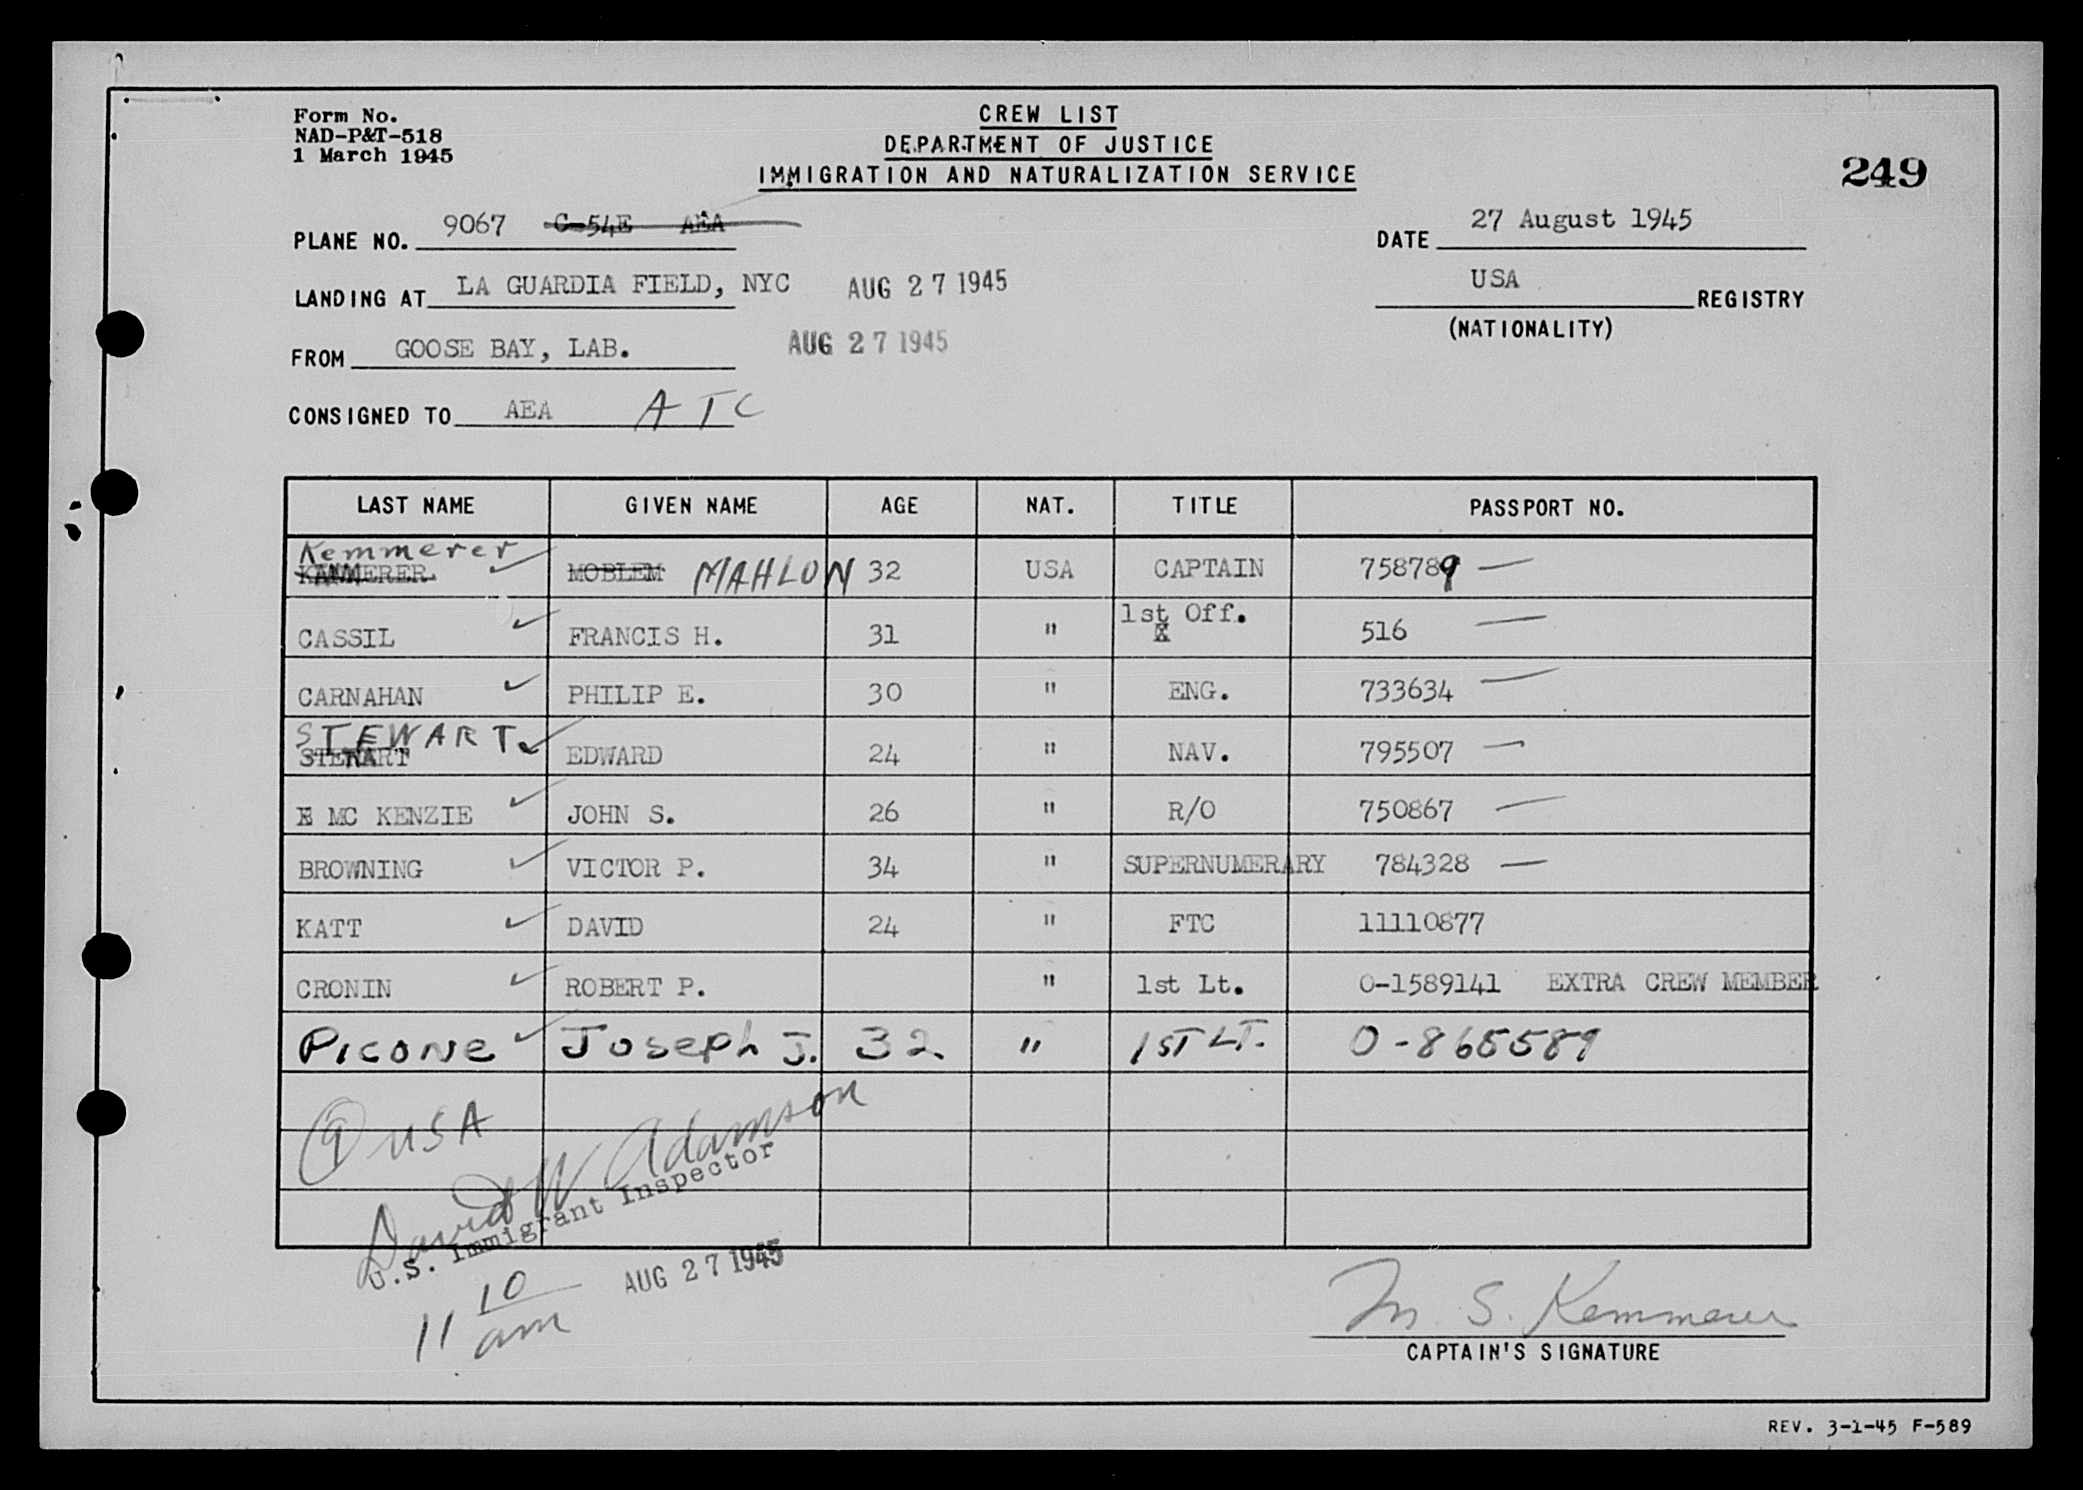 Form No.
NAD-P&T-518
1 March 1945
CREW LIST
DEPARTMENT OF JUSTICE
IMMIGRATION AND NATURALIZATION SERVICE
249
PLANE NO. 9067 C-54E AEA
DATE 27 August 1945
LANDING AT LA GUARDIA FIELD, NYC AUG 27 1945
USA REGISTRY
(NATIONALITY)
FROM GOOSE BAY, LAB. AUG 27 1945
CONSIGNED TO AEA ATC
LAST NAME GIVEN NAME AGE NAT. TITLE PASSPORT NO.
Kemmerer
KAMMERER MOBLEM MAHLON 32 USA CAPTAIN 758789 —
CASSIL FRANCIS H. 31 " 1st Off. 516 —
CARNAHAN PHILIP E. 30 " ENG. 733634 —
STEWART
STEWART EDWARD 24 " NAV. 795507 —
MC KENZIE JOHN S. 26 " R/O 750867 —
BROWNING VICTOR P. 34 " SUPERNUMERARY 784328 —
KATT DAVID 24 " FTC 11110877
CRONIN ROBERT P. " 1st Lt. O-1589141 EXTRA CREW MEMBER
PICONE Joseph J. 32 " 1ST LT. O-865589
9 USA
David W Adamson
U.S. Immigrant Inspector
11 10 am AUG 27 1945
M. S. Kemmerer
CAPTAIN'S SIGNATURE
REV. 3-1-45 F-589